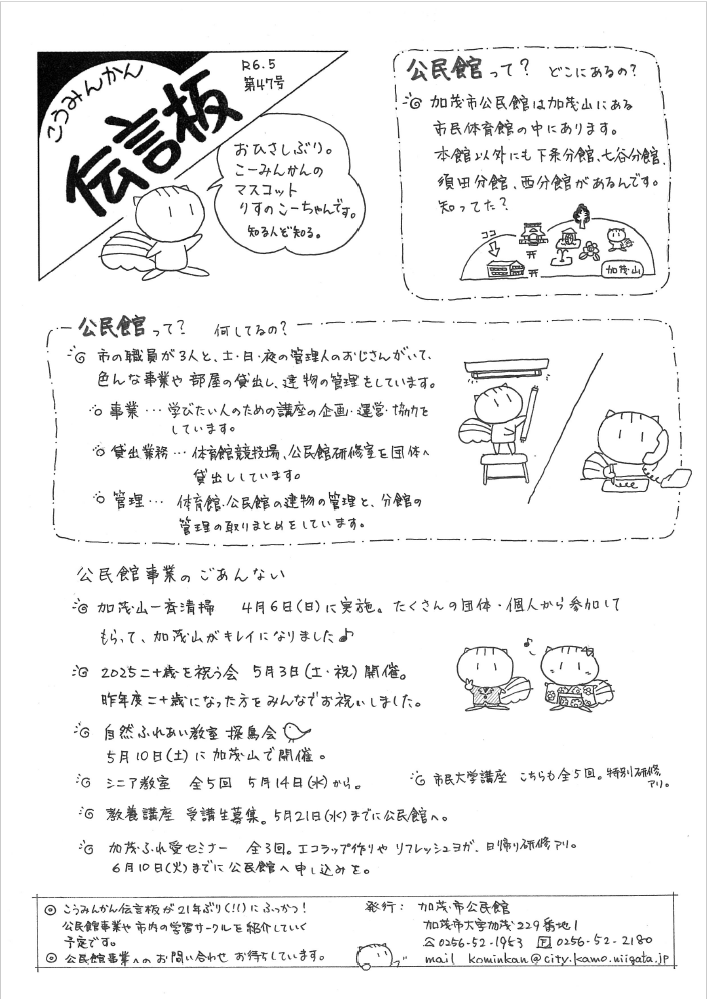 こうみんかん
伝言板
R6.5
第47号
おひさしぶり。
こーみんかんの
マスコット
りすのこーちゃんです。
知る人ぞ知る。
公民館って? どこにあるの?
加茂市公民館は加茂山にある
市民体育館の中にあります。
本館以外にも下条分館、七谷分館、
須田分館、西分館があるんです。
知ってた?
ココ
加茂山
公民館って? 何してるの?
市の職員が3人と、土・日・夜の管理人のおじさんがいて、
色んな事業や部屋の貸出し、建物の管理をしています。
事業… 学びたい人のための講座の企画・運営・協力を
しています。
貸出業務… 体育館競技場、公民館研修室を団体へ
貸出ししています。
管理… 体育館・公民館の建物の管理と、分館の
管理の取りまとめをしています。
公民館事業のごあんない
加茂山一斉清掃 4月6日(日)に実施。たくさんの団体・個人から参加して
もらって、加茂山がキレイになりました♪
2025二十歳を祝う会 5月3日(土・祝)開催。
昨年度二十歳になった方をみんなでお祝いしました。
自然ふれあい教室 探鳥会
5月10日(土)に加茂山で開催。
シニア教室 全5回 5月14日(水)から。
市民大学講座 こちらも全5回。特別研修
アリ。
教養講座 受講生募集。5月21日(水)までに公民館へ。
加茂ふれ愛セミナー 全3回。エコラップ作りや リフレッシュヨガ、日帰り研修アリ。
6月10日(火)までに公民館へ申し込みを。
◎ こうみんかん伝言板が21年ぶり(!!)にふっかつ!
公民館事業や市内の学習サークルを紹介していく
予定です。
◎ 公民館事業へのお問い合わせ お待ちしています。
発行: 加茂市公民館
加茂市大字加茂229番地1
☎0256-52-1953 F 0256-52-2180
mail kominkan@city.kamo.niigata.jp